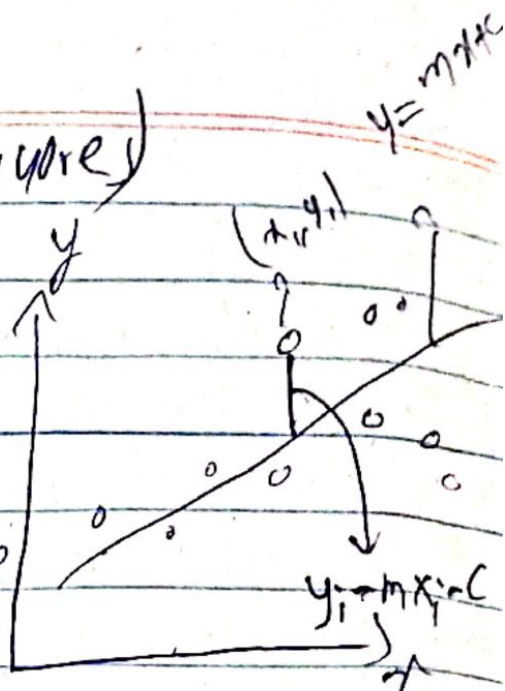 y = mx+c
y
(x₁, y₁)
yᵢ - mxᵢ - c
x